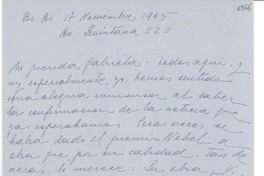 Bs. As 17 Noviembre 1945
Av. Quintana 520
Mi querida Gabriela - todos aquí, y
yo especialmente yo, hemos sentido
una alegría inmensa al saber
la confirmación de la noticia que
ya esperábamos. Pocas veces se
habrá dado el premio Nóbel a
obra que, por su calidad, tan de
veras, lo merece. Su obra, y